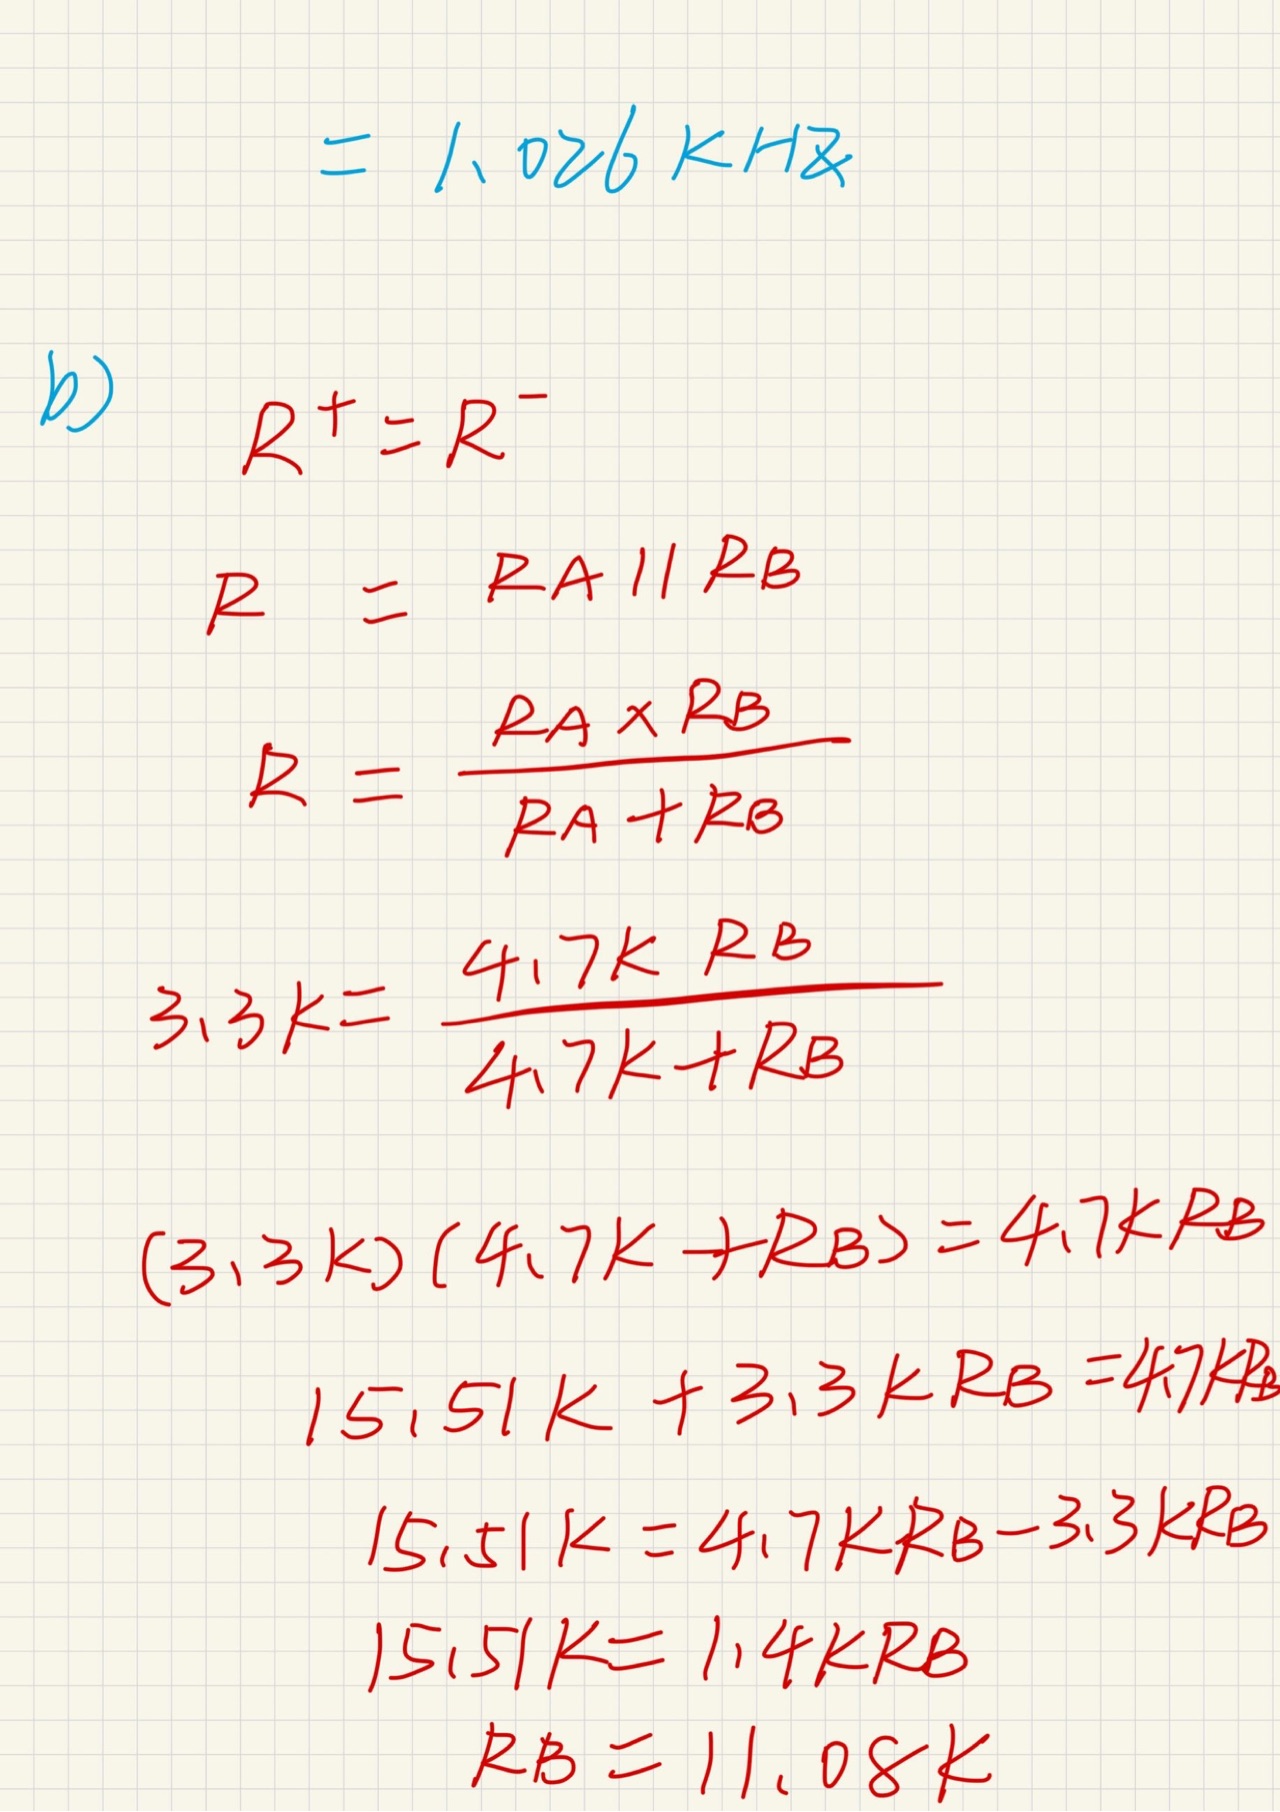 = 1.026 KHZ
b) R⁺ = R⁻
R = RA || RB
R = RA × RB
RA + RB
3.3K = 4.7K RB
4.7K + RB
(3.3K)(4.7K + RB) = 4.7K RB
15.51K + 3.3K RB = 4.7K RB
15.51K = 4.7K RB - 3.3K RB
15.51K = 1.4K RB
RB = 11.08K